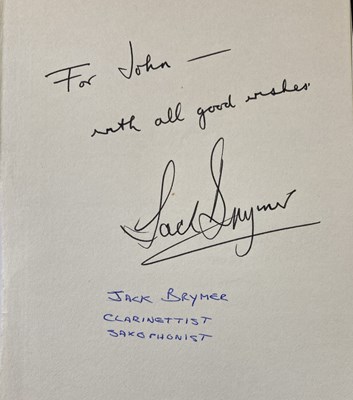 For John —
with all good wishes.
Jack Brymer
JACK BRYMER
CLARINETTIST
SAXOPHONIST